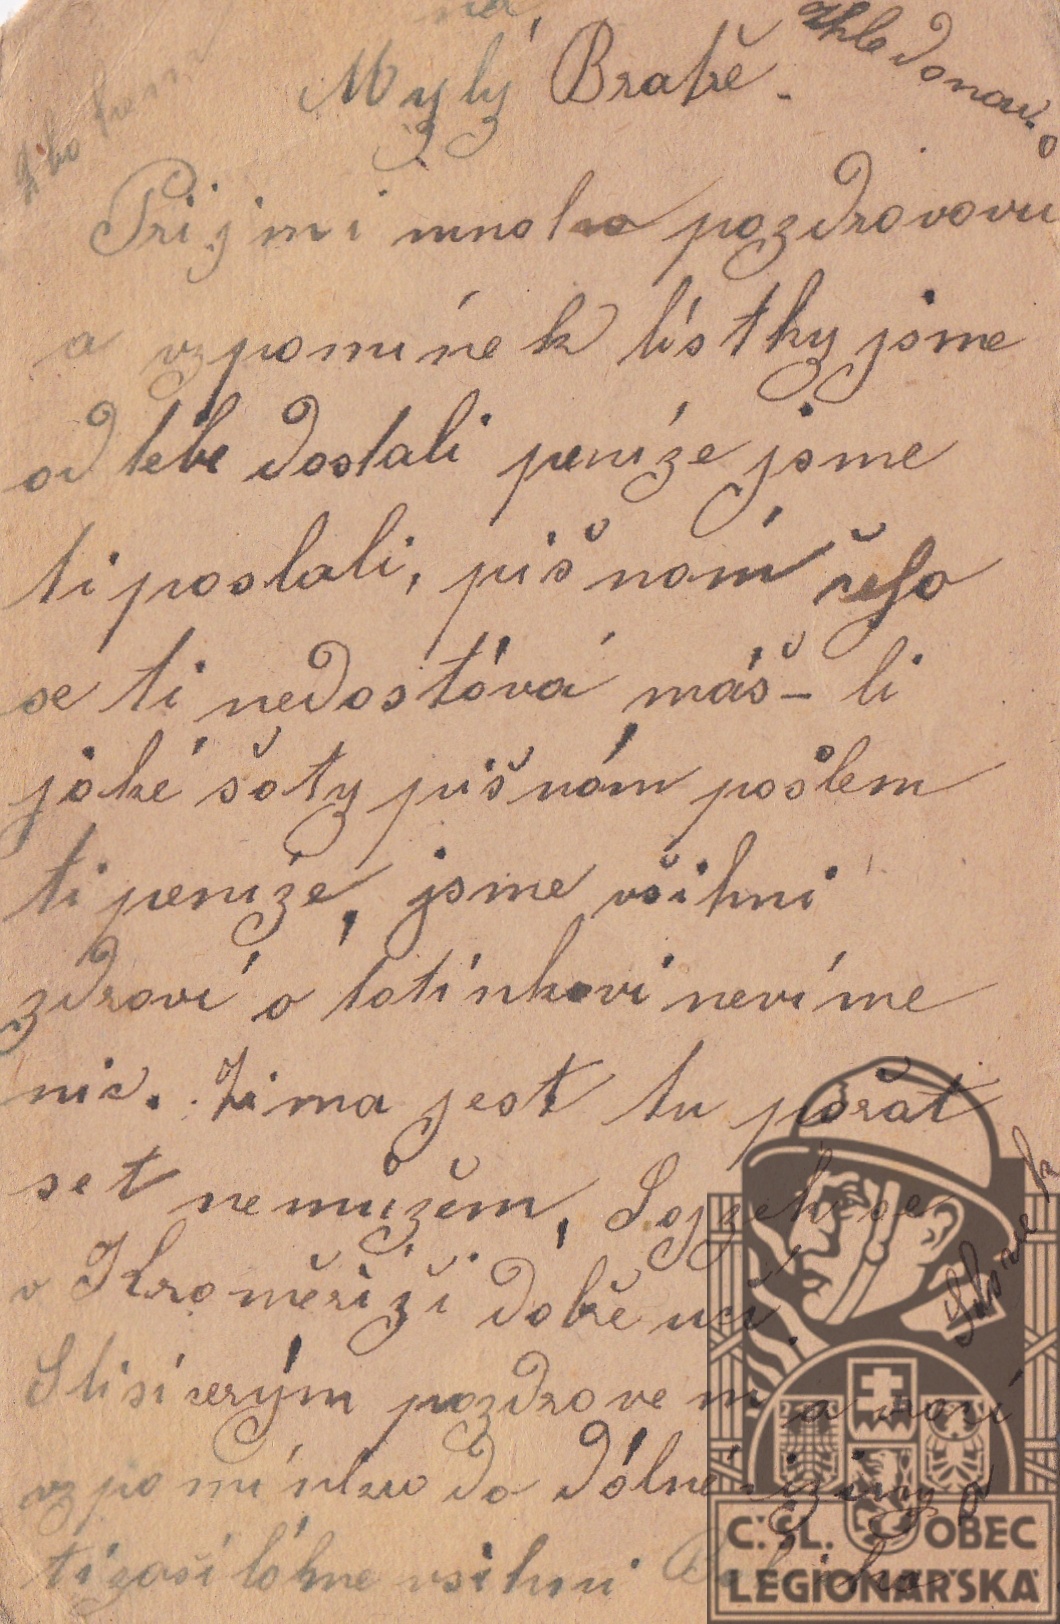 na
Mylý Bratře.
Prijmi mnoho pozdrovovu
a vzpomínek lístky jsme
od tebe dostali peníze jsme
ti poslali, piš nom čeho
se ti nedostóvá máš-li
joké šoty piš nóm pošlem
ti peníze, jsme všihni
zdroví o totínkovi nevíme
nic. Zima jest tu pořát
set nemůžem,
v Kroměříži dobře učí.
S tisícerým pozdrovem a
vzpomínkou do dólné
ti zasílóme všihni
Č:SL. OBEC
LEGIONÁŘSKÁ